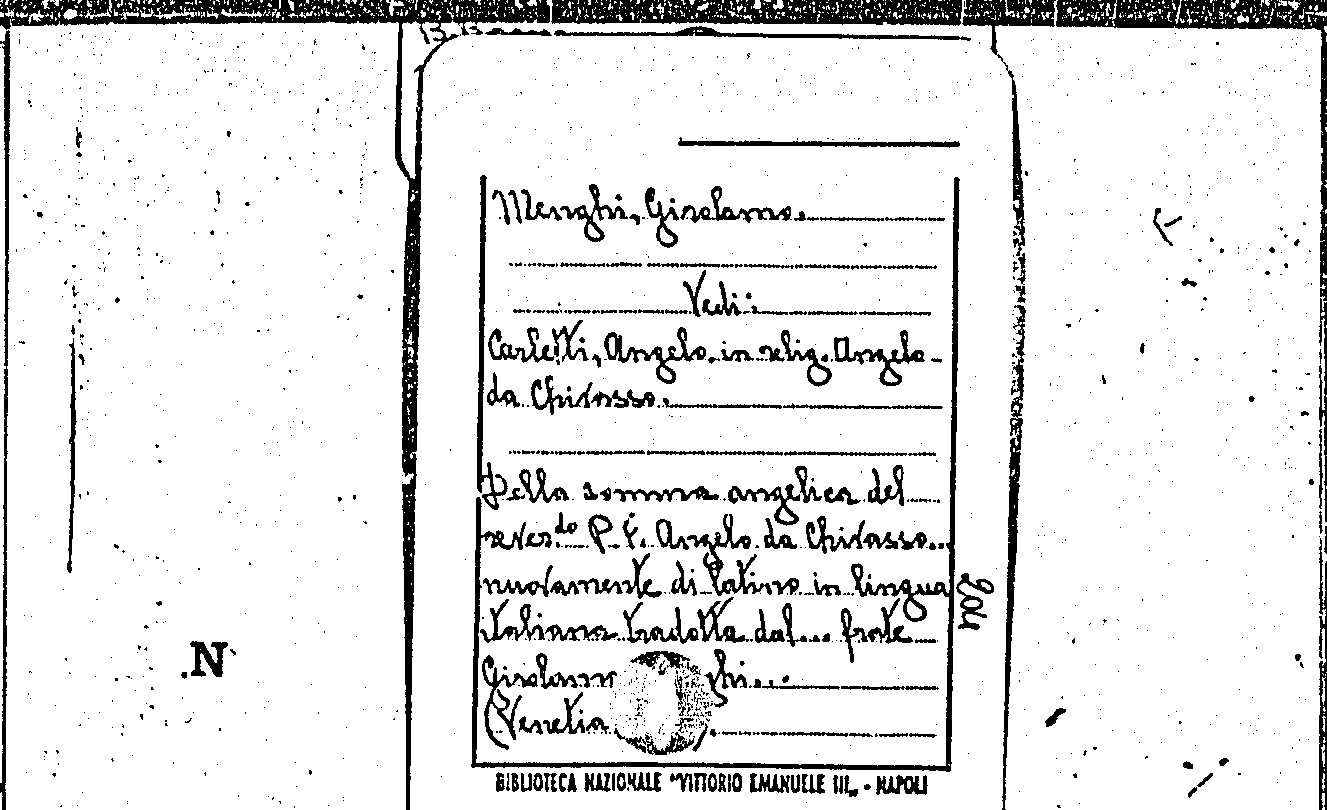 Menghi, Girolamo.
Vedi:
Carletti, Angelo, in relig. Angelo
da Chivasso.
Della somma angelica del
rever.do P. F. Angelo da Chivasso...
nuovamente di latino in lingua
italiana tradotta dal... frate
Girolamo ghi...
(Venetia ).
BIBLIOTECA NAZIONALE "VITTORIO EMANUELE III„ - NAPOLI
.N